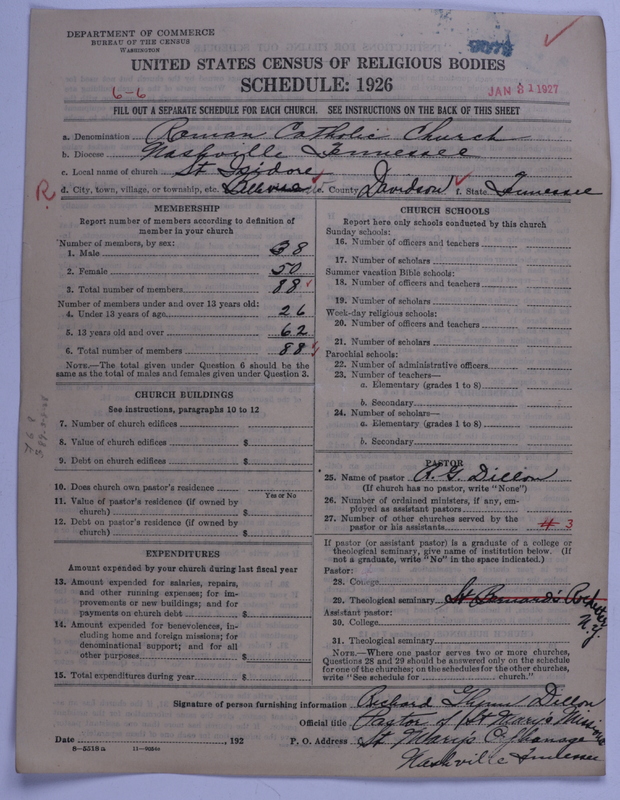 DEPARTMENT OF COMMERCE
BUREAU OF THE CENSUS
WASHINGTON
UNITED STATES CENSUS OF RELIGIOUS BODIES
SCHEDULE: 1926
6-6
JAN 31 1927
FILL OUT A SEPARATE SCHEDULE FOR EACH CHURCH. SEE INSTRUCTIONS ON THE BACK OF THIS SHEET
a. Denomination Roman Catholic Church
b. Diocese Nashville Tennessee
c. Local name of church St Isidore
R d. City, town, village, or township, etc. Bellevue e. County Davidson f. State Tennessee
MEMBERSHIP
Report number of members according to definition of
member in your church
Number of members, by sex:
1. Male 38
2. Female 50
3. Total number of members 88
Number of members under and over 13 years old:
4. Under 13 years of age 26
5. 13 years old and over 62
6. Total number of members 88
NOTE.—The total given under Question 6 should be the
same as the total of males and females given under Question 3.
CHURCH BUILDINGS
See instructions, paragraphs 10 to 12
7. Number of church edifices
8. Value of church edifices $
9. Debt on church edifices $
10. Does church own pastor's residence
Yes or No
11. Value of pastor's residence (if owned by
church) $
12. Debt on pastor's residence (if owned by
church) $
EXPENDITURES
Amount expended by your church during last fiscal year
13. Amount expended for salaries, repairs,
and other running expenses; for im-
provements or new buildings; and for
payments on church debt $
14. Amount expended for benevolences, in-
cluding home and foreign missions; for
denominational support; and for all
other purposes $
15. Total expenditures during year $
CHURCH SCHOOLS
Report here only schools conducted by this church
Sunday schools:
16. Number of officers and teachers
17. Number of scholars
Summer vacation Bible schools:
18. Number of officers and teachers
19. Number of scholars
Week-day religious schools:
20. Number of officers and teachers
21. Number of scholars
Parochial schools:
22. Number of administrative officers
23. Number of teachers—
a. Elementary (grades 1 to 8)
b. Secondary
24. Number of scholars—
a. Elementary (grades 1 to 8)
b. Secondary
PASTOR
25. Name of pastor R. G. Dillon
(If church has no pastor, write "None")
26. Number of ordained ministers, if any, em-
ployed as assistant pastors
27. Number of other churches served by the
pastor or his assistants 4 3
If pastor (or assistant pastor) is a graduate of a college or
theological seminary, give name of institution below. (If
not a graduate, write "No" in the space indicated.)
Pastor:
28. College
29. Theological seminary St Bernard's Rochester N.Y.
Assistant pastor:
30. College
31. Theological seminary
NOTE.—Where one pastor serves two or more churches,
Questions 28 and 29 should be answered only on the schedule
for one of the churches; on the schedules for the other churches,
write "See schedule for church."
Signature of person furnishing information Richard Glynn Dillon
Official title Pastor of St Mary's Missions
Date , 192 P. O. Address St Mary's Orphanage
8-5518a 11-9054a Nashville Tennessee